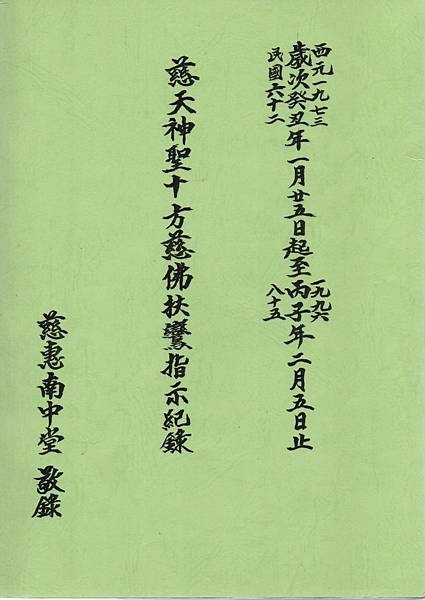 西元一九七三
歲次癸丑年一月廿五日起至丙子年二月五日止
民國六十二
一九九六
八十五
慈天神聖十方慈佛扶鸞指示紀錄
慈惠南中堂 敬錄